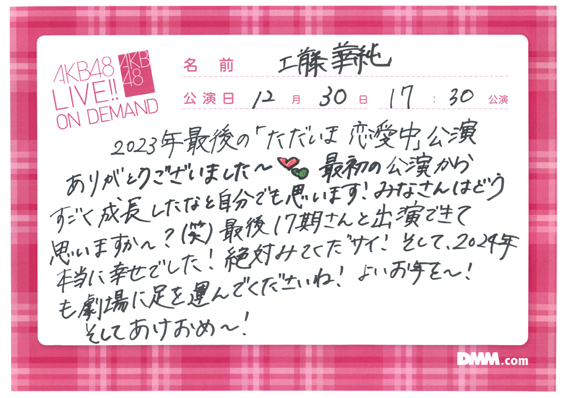 AKB48
LIVE!!
ON DEMAND
AKB
48
名前 工藤華純
公演日 12月30日 17:30公演
2023年最後の「ただいま 恋愛中」公演
ありがとうございました〜 最初の公演から
すごく成長したなと自分でも思います!みなさんはどう
思いますか〜?(笑)最後17期さんと出演できて
本当に幸せでした!絶対みてくだサイ!そして、2024年
も劇場に足を運んでくださいね!よいお年を〜!
そしてあけおめ〜!
DMM.com